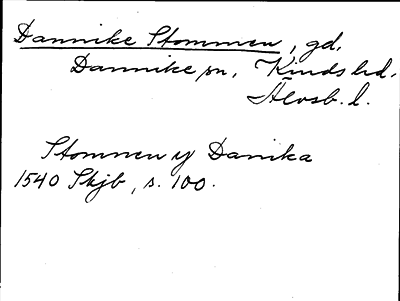 Dannike Stommen, gd,
Dannike sn, Kinds hd.
Älvsb. l.
Stommen y Danika
1540 Skjb, s. 100.